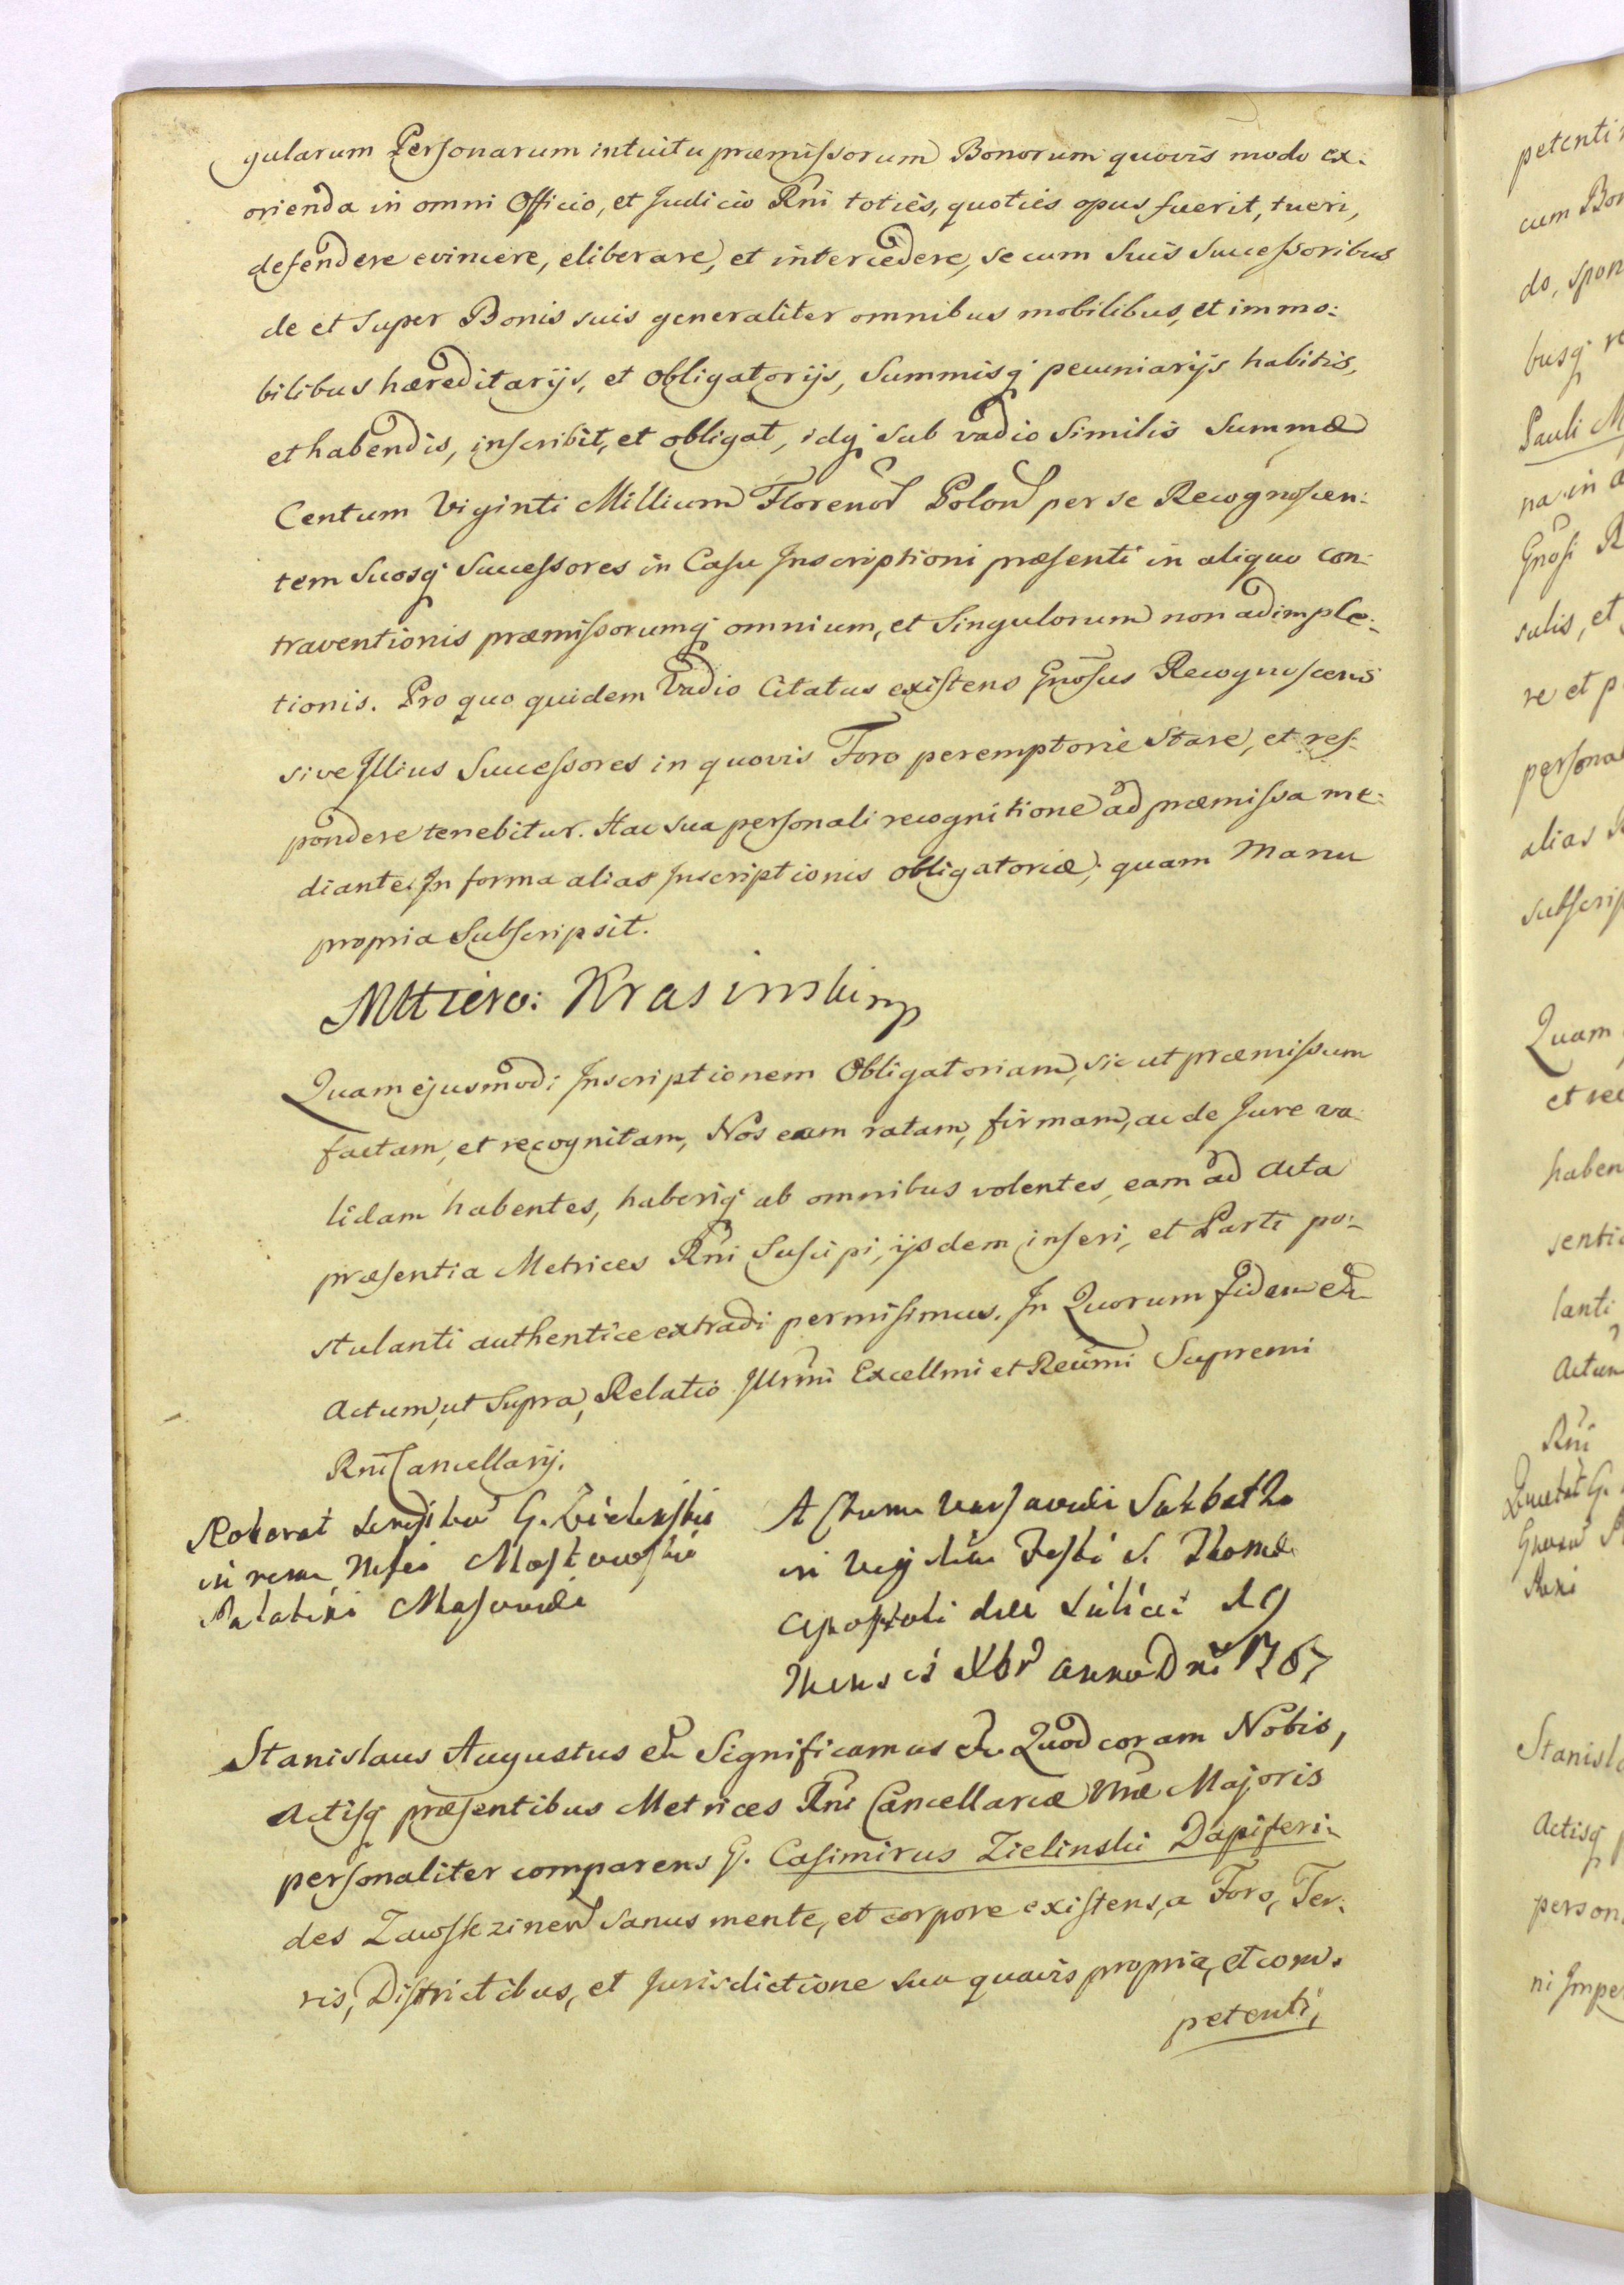 gularum Personarum intuitu præmissorum Bonorum quovis modo ex:
orienda in omni Officio, et Judicio Rni toties, quoties opus fuerit, tueri,
defendere evincere, eliberare, et intercedere, se cum suis Successoribus
de et super Bonis suis generaliter omnibus mobilibus, et immo:
bilibus hæreditarijs, et obligatorijs, Summisq pecuniarijs habitis,
et habendis, inscribit, et obligat, idq sub vadio similis Summæ
Centum Viginti Millium Floreno Polon per se Recognoscen:
tem Suosq Successores in Casu Inscriptioni præsenti in aliquo con:
traventionis præmissorumq omnium, et Singulorum non adimple:
tionis. Pro quo quidem Vadio Citatus existens Gnosus Recognoscens
sive Illius Successores in quovis Foro peremptorie Stare, et res
pondere tenebitur. Hac sua personali recognitione ad præmissa me:
diante. In forma alias Inscriptionis obligatoriæ; quam Manu
propria Subscripsit.
Krasinski mp
Quam ejusmodi Inscriptionem Obligatoriam, sic ut præmissum
factam, et recognitam, Nos eam ratam, firmam, ac de Jure va:
lidam habentes, haberiq ab omnibus volentes, eam ad Acta
præsentia Metrices Rni Suscipi, ijsdem inseri, et Parti po:
stulanti authentice extradi permisimus. In Quorum fidem etc
Actum, ut Supra, Relatio Illrmi Excellmi et Reümi Supremi
Rni Cancellarij.
Roborat G. Zielinski
in rem Mfci Mostowski
Palatini Masoviæ
Actum Varsaviæ Sabbatho
in Vigilia Festi S. Thomæ
Apostoli die 19
Mensis Xbr Anno Dni 1767
Stanislaus Augustus etc Significamus etc Quod coram Nobis,
Actisq præsentibus Metrices Rni Cancellariæ Majoris
personaliter comparens G. Casimirus Zielinski Dapiferi:
des Zawskzinen Sanus mente, et corpore existens, a Foro, Ter:
ris, Districtibus, et Jurisdictione sua quavis propria, et com:
petenti,
petenti
cum Bon
do, spon
busq
Pauli M
na in
Gnosi R
sulis, et
re et p
persona
alias
subscrip
Quam
et rec
haben
senti
lanti
Actum
Rni
Stanisla
Actisq
person
ni Impe